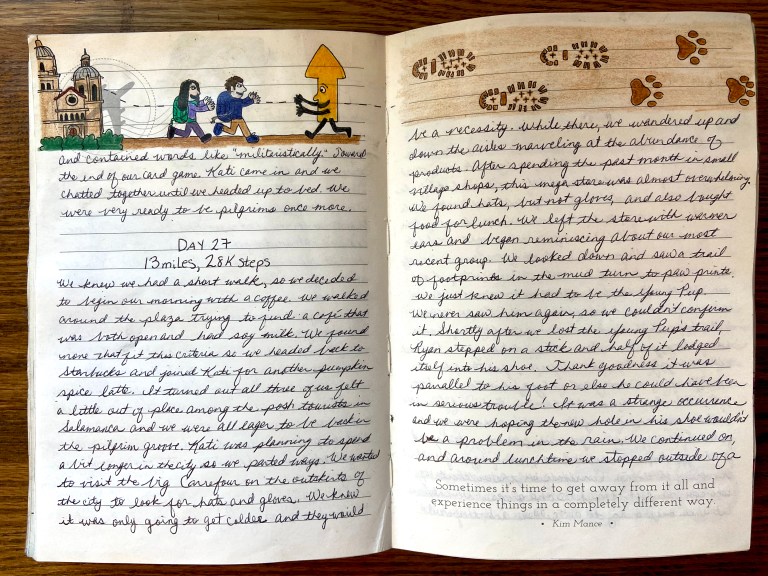 and contained words like "militaristically." Toward
the end of our card game, Kati came in and we
chatted together until we headed up to bed. We
were very ready to be pilgrims once more.
DAY 27
13 miles, 28K steps
We knew we had a short walk, so we decided
to begin our morning with a coffee. We walked
around the plaza trying to find a café that
was both open and had soy milk. We found
none that fit this criteria so we headed back to
Starbucks and joined Kati for another pumpkin
spice latte. It turned out all three of us felt
a little out of place among the posh tourists in
Salamanca and we were all eager to be back in
the pilgrim groove. Kati was planning to spend
a bit longer in the city so we parted ways. We wanted
to visit the big Carrefour on the outskirts of
the city to look for hats and gloves. We knew
it was only going to get colder and they would
be a necessity. While there, we wandered up and
down the aisles marveling at the abundance of
products. After spending the past month in small
village shops, this mega store was almost overwhelming.
We found hats, but not gloves, and also bought
food for lunch. We left the store with warmer
ears and began reminiscing about our most
recent group. We looked down and saw a trail
of footprints in the mud turn to paw prints.
We just knew it had to be the Young Pup.
We never saw him again, so we couldn't confirm
it. Shortly after we lost the Young Pup's trail,
Ryan stepped on a stick and half of it lodged
itself into his shoe. Thank goodness it was
parallel to his foot or else he could have been
in serious trouble! It was a strange occurrence
and we were hoping the new hole in his shoe wouldn't
be a problem in the rain. We continued on,
and around lunchtime we stopped outside of a
Sometimes it's time to get away from it all and
experience things in a completely different way.
• Kim Mance •